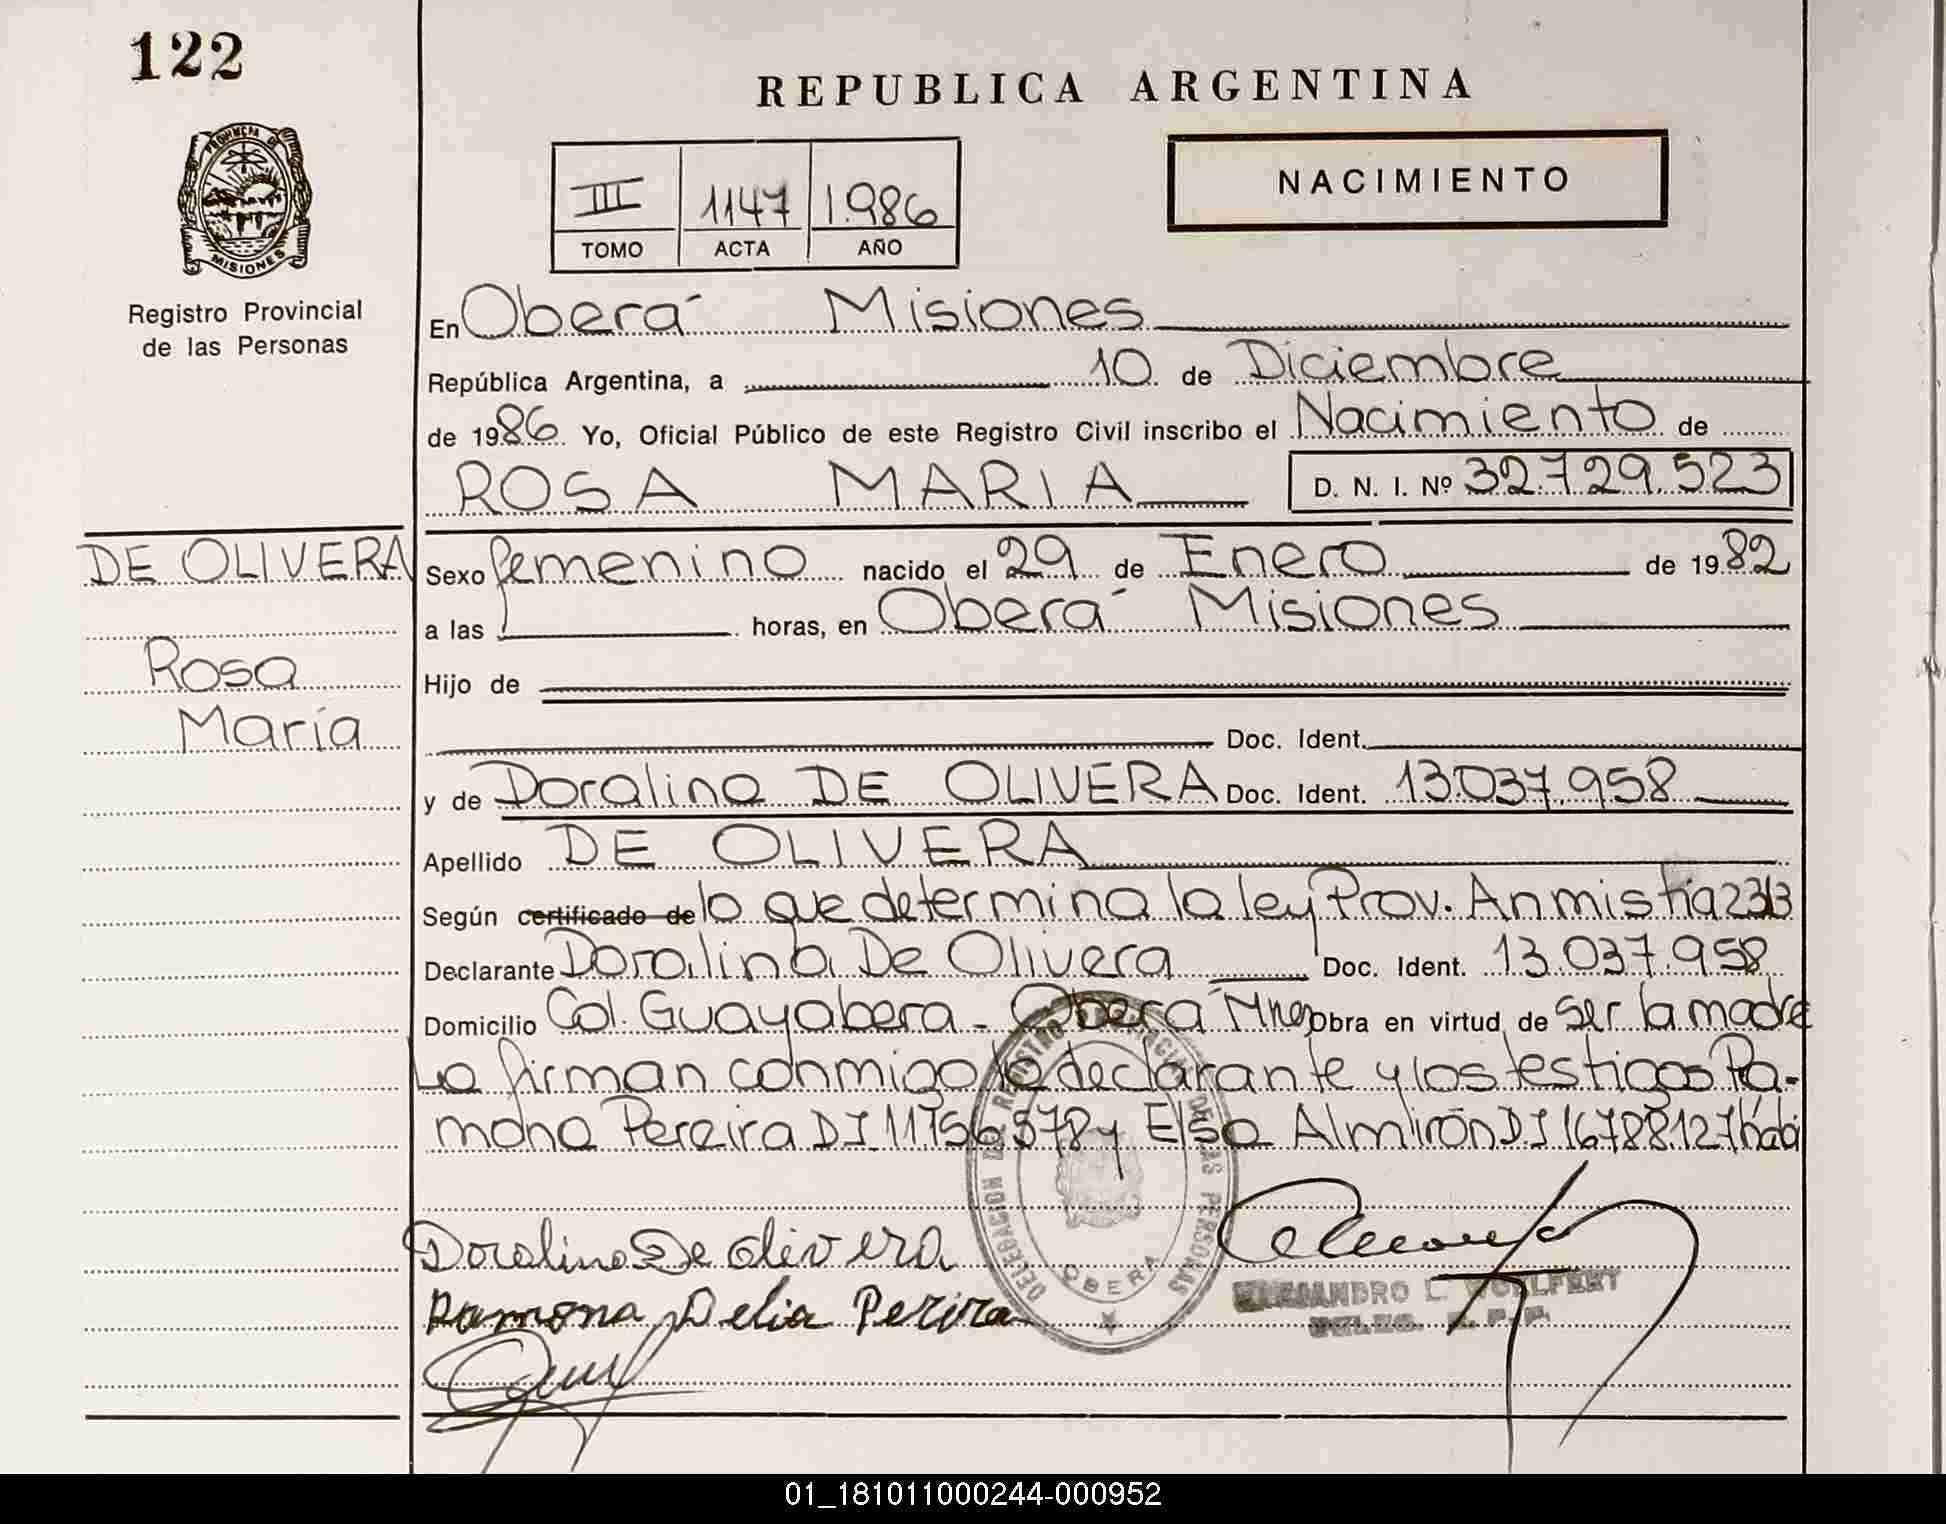 122
REPUBLICA ARGENTINA
PROVINCIA DE
MISIONES
Registro Provincial
de las Personas
III 1147 1.986
TOMO ACTA AÑO
NACIMIENTO
En Oberá Misiones
República Argentina, a 10 de Diciembre
de 1986 Yo, Oficial Público de este Registro Civil inscribo el Nacimiento de
ROSA MARIA D. N. I. Nº 32.729.523
DE OLIVERA
Rosa
María
Sexo femenino nacido el 29 de Enero de 1982
a las horas, en Oberá Misiones
Hijo de
Doc. Ident.
y de Doralina DE OLIVERA Doc. Ident. 13.037.958
Apellido DE OLIVERA
Según certificado de lo que determina la ley Prov. Anmistía 2313
Declarante Doralina De Olivera Doc. Ident. 13.037.958
Domicilio Col. Guayabera - Oberá Mnes Obra en virtud de ser la madre
La firman conmigo la declarante y los testigos Ra-
mona Pereira DI 11.756.578 y Elsa Almirón D.I 16.788.127 hábi
Doralina De olivera
Ramona Delia Perira
DELEGACION DEL REGISTRO PROVINCIAL DE LAS PERSONAS
OBERA
ALEJANDRO L. WOHLFERT
DELEG. R. P. P.
01_181011000244-000952